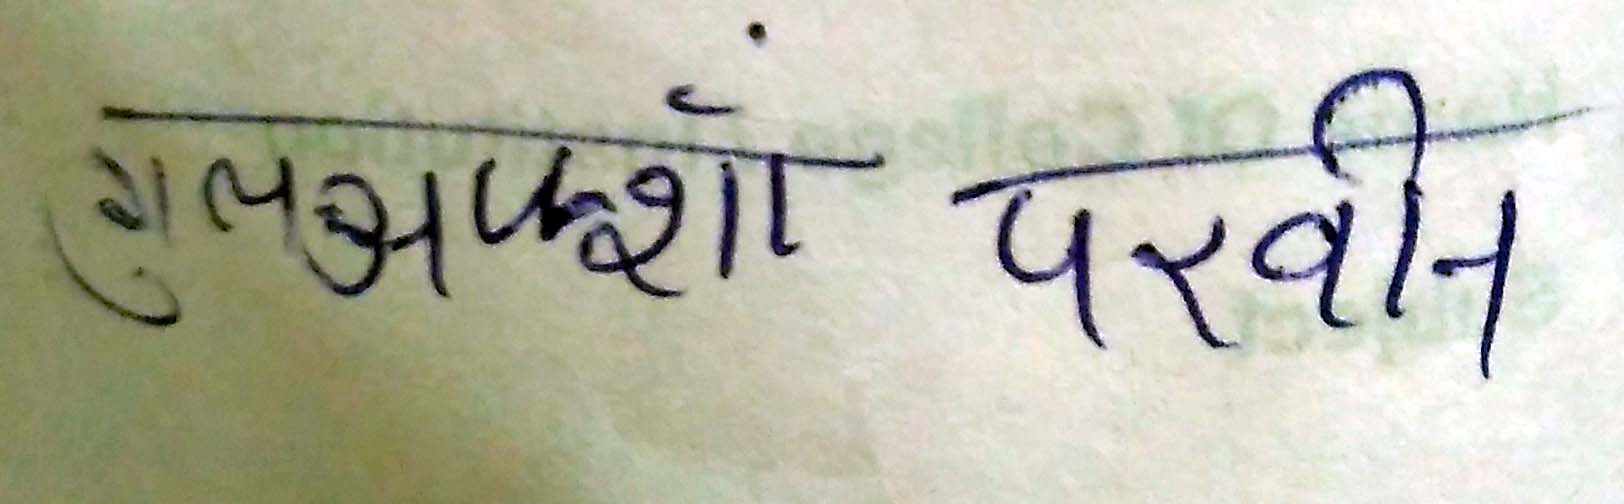 गुलअफ्शाँ परवीन